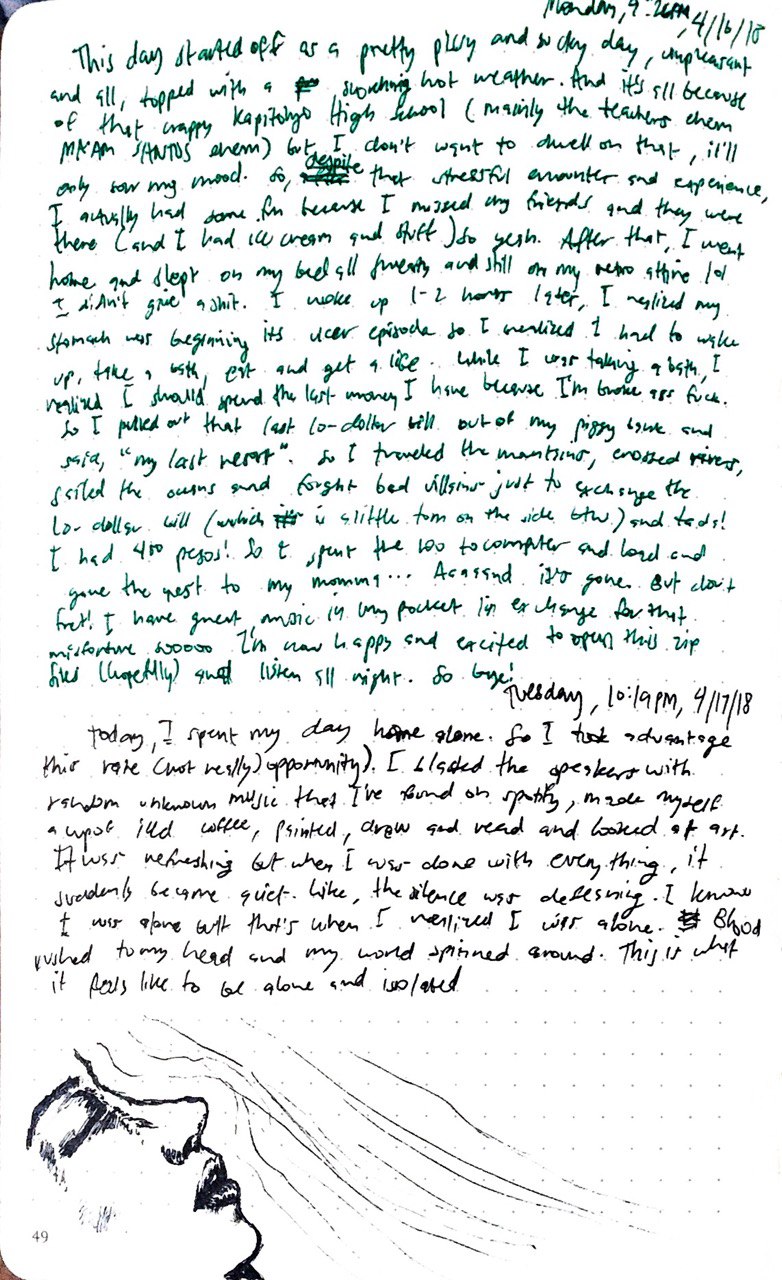 Monday, 9:26PM, 4/16/18
This day started off as a pretty and sucky day, unpleasant
and all, topped with a scorching hot weather. And it's all because
of that crappy Kapitolyo High School (mainly the teachers ehem
MA'AM SANTOS ehem) but I don't want to dwell on that, it'll
only sour my mood. So, despite that stressful encounter and experience,
I actually had some fun because I missed my friends and they were
there (and I had ice cream and stuff) so yeah. After that, I went
home and slept on my bed all sweaty and still on my retro attire lol
I didn't give a shit. I woke up 1-2 hours later, I realized my
stomach was beginning its ulcer episode so I realized I had to wake
up, take a bath, eat and get a life. While I was taking a bath, I
realized I should spend the last money I have because I'm broke ass fuck.
So I pulled out that last 10-dollar bill out of my piggy bank and
said, "my last resort". So I traveled the mountains, crossed rivers,
sailed the oceans and fought bad villains just to exchange the
10-dollar bill (which is a little torn on the side btw.) and tada!
I had 400 pesos! So I spent the 100 to computer and load and
gave the rest to my mommy... Aaaaand it's gone. But don't
fret! I have great music in my pocket in exchange for that
misfortune sooooo I'm now happy and excited to open this zip
files (hopefully) and listen all night. So bye!
Tuesday, 10:19PM, 4/17/18
Today, I spent my day home alone. So I took advantage
this rare (not really) opportunity). I blasted the speakers with
random unknown music that I've found on spotify, made myself
a cup of iced coffee, painted, drew and read and looked at art.
It was refreshing but when I was done with everything, it
suddenly became quiet. Like, the silence was deafening. I know
I was alone but that's when I realized I was alone. Blood
rushed to my head and my world spinned around. This is what
it feels like to be alone and isolated
49